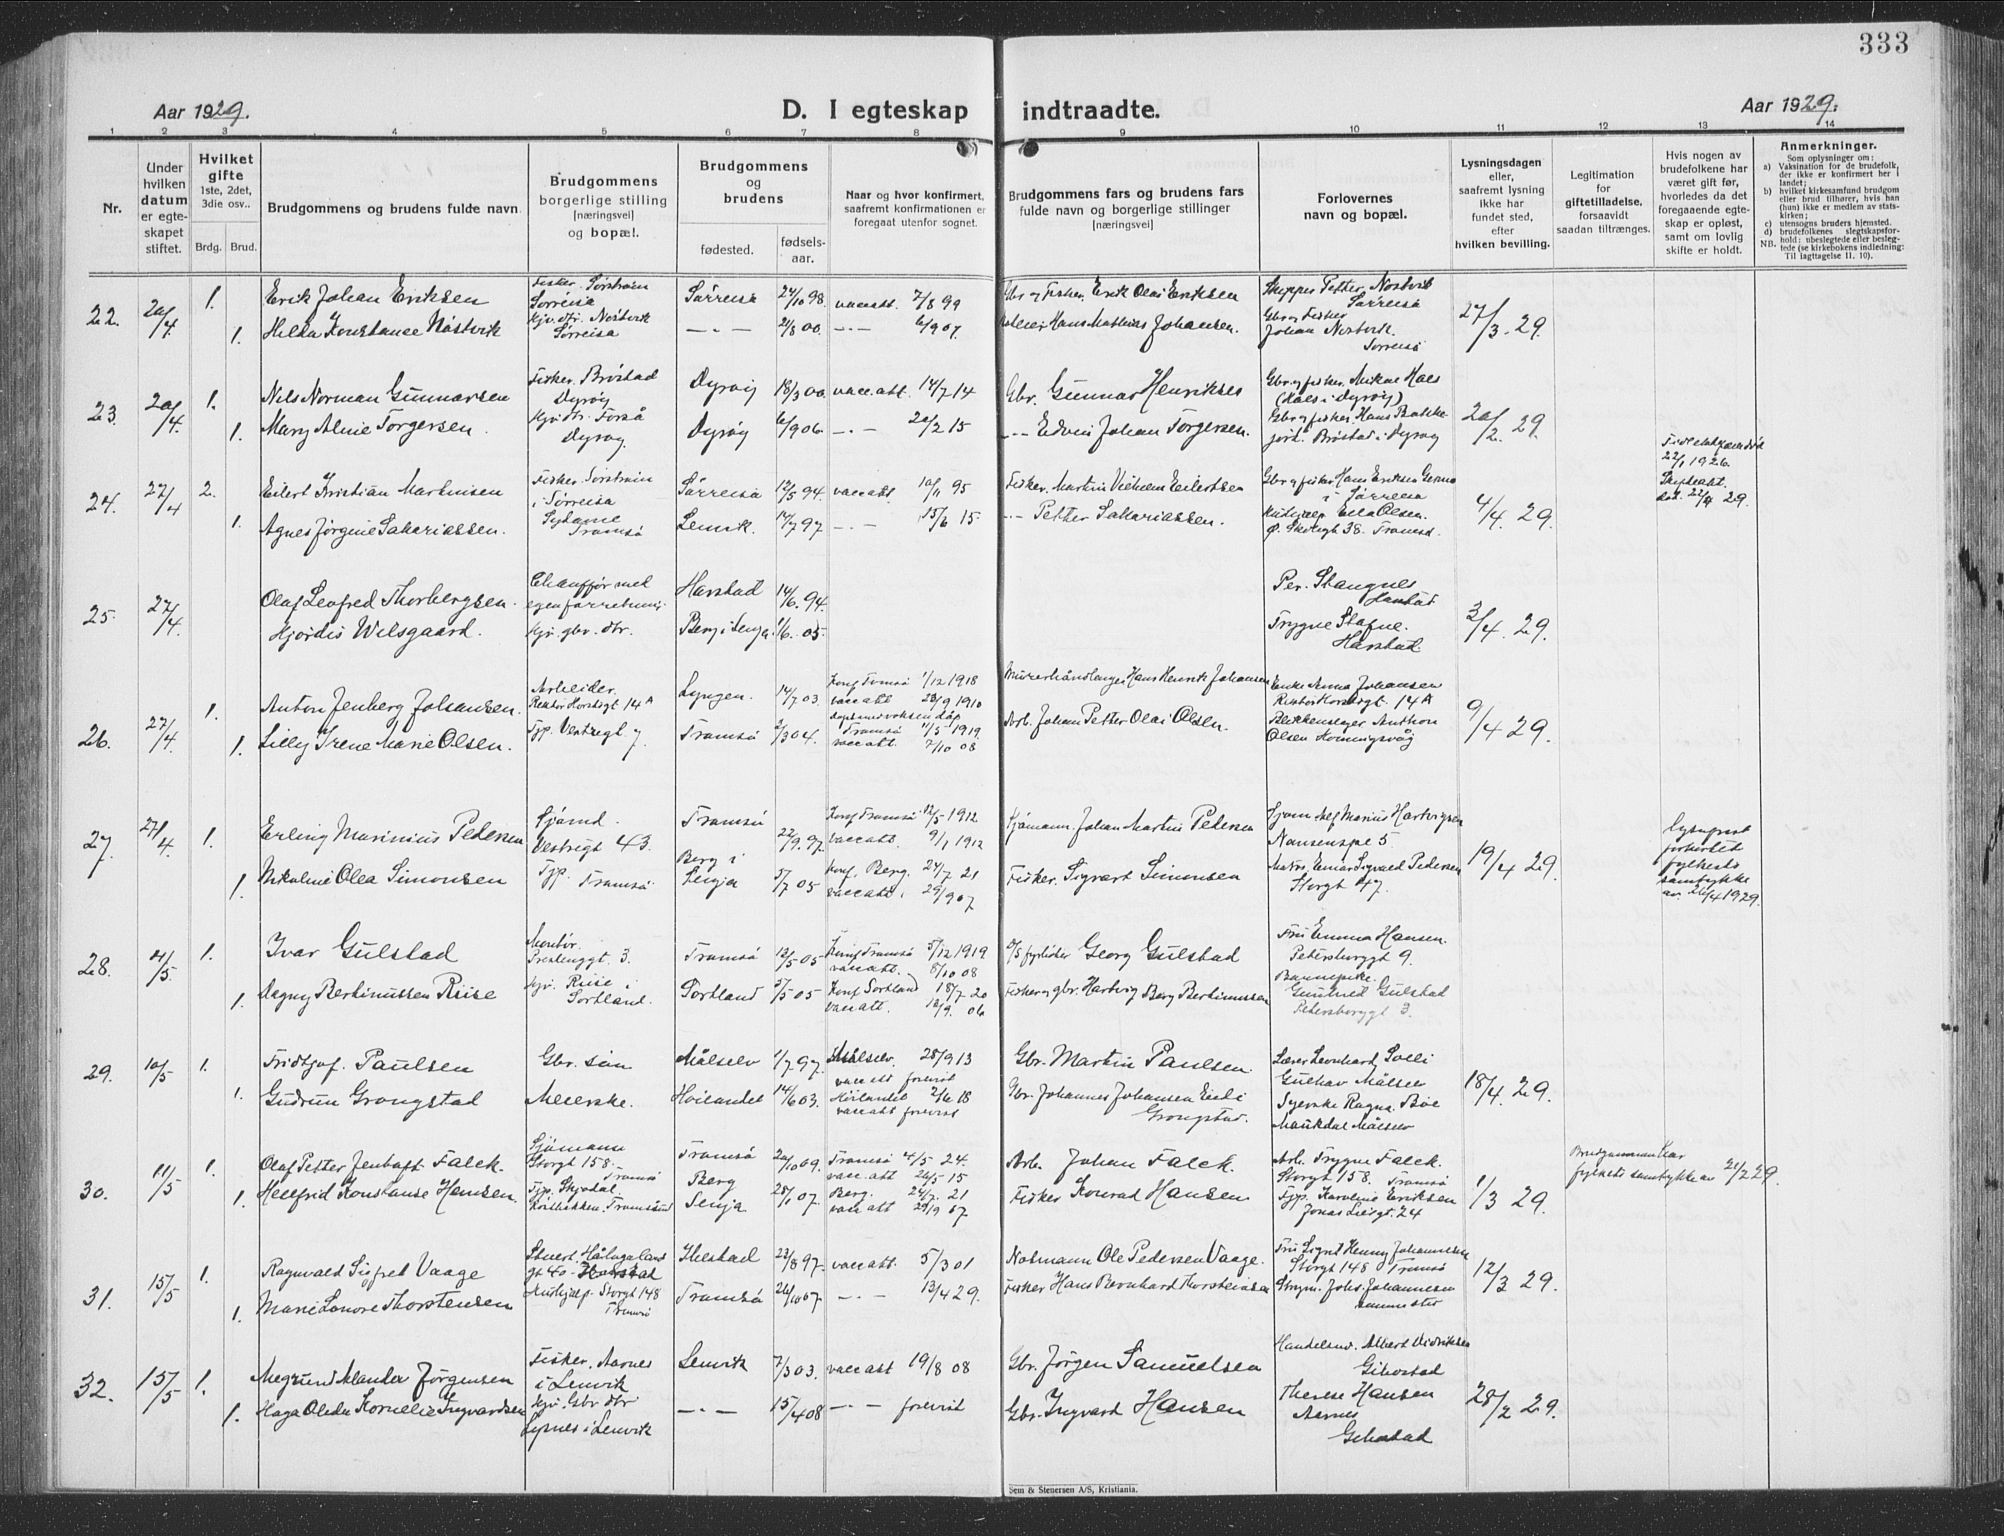 333
Aar 1929.
D. I egteskap indtraadte.
Aar 1929.
1 2 3 4 5 6 7 8 9 10 11 12 13 14
Nr.
Under hvilken datum er egteskapet stiftet.
Hvilket gifte
1ste, 2det, 3die osv..
Brdg. Brud.
Brudgommens og brudens fulde navn
Brudgommens borgerlige stilling [næringsvei] og bopæl.
Brudgommens og brudens
fødested.
fødselsaar.
Naar og hvor konfirmert, saafremt konfirmationen er foregaat utenfor sognet.
Brudgommens fars og brudens fars fulde navn og borgerlige stillinger [næringsvei]
Forlovernes navn og bopæl.
Lysningsdagen eller, saafremt lysning ikke har fundet sted, efter hvilken bevilling.
Legitimation for giftetilladelse, forsaavidt saadan tiltrænges.
Hvis nogen av brudefolkene har været gift før, hvorledes da det foregaaende egteskap er opløst, samt om lovlig skifte er holdt.
Anmerkninger.
Som oplysninger om:
a) Vaksination for de brudefolk, der ikke er konfirmert her i landet;
b) hvilket kirkesamfund brudgom eller brud tilhører, hvis han (hun) ikke er medlem av statskirken;
c) utensogns bruders hjemsted.
d) brudefolkenes slegtskapsforhold: ubeslegtede eller beslegtede (se kirkebokens indledning: Til iagttagelse II. 10).
NB.
22. 20/4 1. Erik Johan Eriksen Fisker. Sørstrøm Sørreisa Sørreisa 24/10 98. vacc att. 7/8 99 Gbr og Fisker. Erik Olai Eriksen Skipper Petter Nøstvik Sørreisa 27/3. 29.
1. Helda Konstance Nøstvik Hjv. dtr. Nøstvik Sørreisa — — 2/8 00. — 6/9 07. Hans Mathias Johansen. Gbr og Fisker Johan Nøstvik Sørreisa
23. 20/4. 1. Nils Norman Gunnarsen Fisker. Brøstad Dyrøy Dyrøy 18/3 00. vacc. att. 14/7 14 Gbr. Gunnar Henriksen Gbr og fisker. Mikal Haes (Haes i Dyrøy) 20/2. 29.
1. Mary Alnie Torgersen. Hjv. dtr. Forså Dyrøy. Dyrøy 6/9 06. — 20/2 15 — Edvin Johan Torgersen. Gbr og fisker Hans Brøstad i Dyrøy
24. 27/4 2. Eilert Kristian Martinsen Fisker. Sørstrøm i Sørreisa Sørreisa 12/5 94. vacc att. 10/11 95 Fisker. Martin Vilhelm Eilertsen Gbr og fisker Hans Eriksen i Sørreisa 4/4. 29. 22/1 1926. Skifteatt. dat. 22/4 29.
1. Agnes Jørgine Sakariassen. Sydame Tromsø Lenvik. 14/7 97 — 15/6 15 — Petter Sakariassen. Hushjelp Ella Olsen. Ø. Skolegt 38. Tromsø.
25. 27/4 Olaf Leofred Thorbergsen. Chauffør med egen forretning. Harstad 14/6. 94. Per. Stangnes Harstad 3/4. 29.
Hjørdis Wilsgaard. Hjv. gbr. dtr. Berg i Senja. 1/6. 05. Trygve Stafne. Harstad
26. 27/4 1. Anton Jenberg Johansen. Arbeider. Rektor Horstgt 14 A Lyngen. 14/7 03. Konf Tromsø 1/12 1918 vacc att 28/9 1910 Murerhåndlanger Hans Henrik Johansen Enke Anna Johansen Rektor Horstgt. 14 A 9/4 29.
1. Lilly Irene Marie Olsen. Tjp. Vestregt 7 Tromsø 2/3 04. Tromsø 4/5 1919. vacc att. 7/10 08 Arb. Johan Petter Olai Olsen. Blikkenslager Anthon Olsen Honningsvåg
27. 27/4. 1. Erling Marinius Pedersen Sjømd. Vestregt 43. Tromsø 22/9. 97. Konf Tromsø 12/5 1912 vacc att. 9/1 1912 Sjømann. Johan Martin Pedersen Sjøm Alf Marius Hartvigsen Nansenspl 5 19/4 29. fylkets samtykke av. 26/4 1929.
1. Nikoline Olea Simonsen Tjp. Tromsø Berg i Senja 5/7 05 Konf. Berg. 24/7 21 vacc att. 29/9 07 Fisker. Sigvart Simonsen Matros Einar Sigvald Pedersen Storgt 47.
28. 4/5. 1. Ivar Gulstad Montør. 3. Tromsø 12/5 05 Konf Tromsø 5/12 1919 vacc att. 8/10 08 D/S fyrbøter Georg Gulstad Fru Emma Hansen. Petersborggt 9.
1. Dagny Bertinussen Riise Hjv. Riise i Sortland. Sortland 5/5 05 Konf Sortland 18/7 20 vacc att. 12/9. 06 Fisker og gbr. Hartvig Berg Bertinussen Barnepike. Gunhild Gulstad Petersborggt 3.
29. 10/5 1. Fridtjof. Paulsen Gbr. søn Målselv 1/7 97. Målselv. 28/9 13 vacc att forevist Gbr. Martin Paulsen. Lærer Leonhard Solli Gulhav Målselv 18/4. 29.
1. Gudrun Grongstad Meierske. Høilandet 14/6 03. Høilandet 2/6 18 vacc att forevist Gbr. Johannes Johansen Eidi Grongstad. Syerske Ragna Bøe Maukdal Målselv
30. 11/5 1. Olaf Petter Jenhaft Falck. Sjømann Storgt 158. Tromsø Tromsø 20/10 09. Tromsø 4/5 24. vacc. att 20/5 15 Arb. Johan Falck. Arb. Trygve Falck. Storgt 158. Tromsø 1/3 29. Brudgommen har fylkets samtykke av 21/2 29.
1. Hellfrid Konstanse Hansen. Tjp. Tromsund Berg Senja 28/1 07. Berg. 24/7. 21 vacc att 29/9 07 Fisker Konrad Hansen Tjp. Karoline Eriksen Jonas Liesgt. 24
31. 15/5 1. Ragnvald Sigfret Vaage Stuert Hålogalandgt 40. Harstad Ibestad 23/8 97. vacc att. 5/3 01 Notmann Ole Pedersen Vaage. Fru Signe Henny Johannesen Storgt 148 Tromsø 12/3 29.
1. Marie Lenore Thorstensen Hushjelp. Storgt 148 Tromsø Tromsø 26/10 07. — 13/4 29. Fisker Hans Bernhard Thorsteinsen Styrm. Johs. Johannesen sammested
32. 15/5 1. Megrund Alander Jørgensen Fisker. Aarnes i Lenvik Lenvik 7/3 03. vacc att 19/8 08 Gbr. Jørgen Samuelsen Handelsmd. Albert Didriksen Gibostad 28/2 29.
1. Haga Oleda Kornelie Ingvardsen Hjv. Gbr dtr i Lenvik — — 15/4 08 — forevist Gbr. Ingvard Hansen Therese Hansen Aarnes Gibostad
Sem & Stenersen A/S, Kristiania.